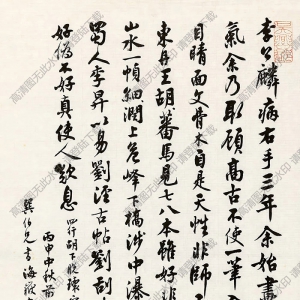 李公麟病右手三年余始畫
氣余乃取顧高古不使一筆
目睛面文骨木自是天性非師
東丹王胡蕃馬見七八本雖好非
山水一幀細潤上危峰下橋涉中瀑
蜀人李昇以易劉涇古帖劉刮
好偽不好真使人歎息
丙申中秋前
巽伯兄